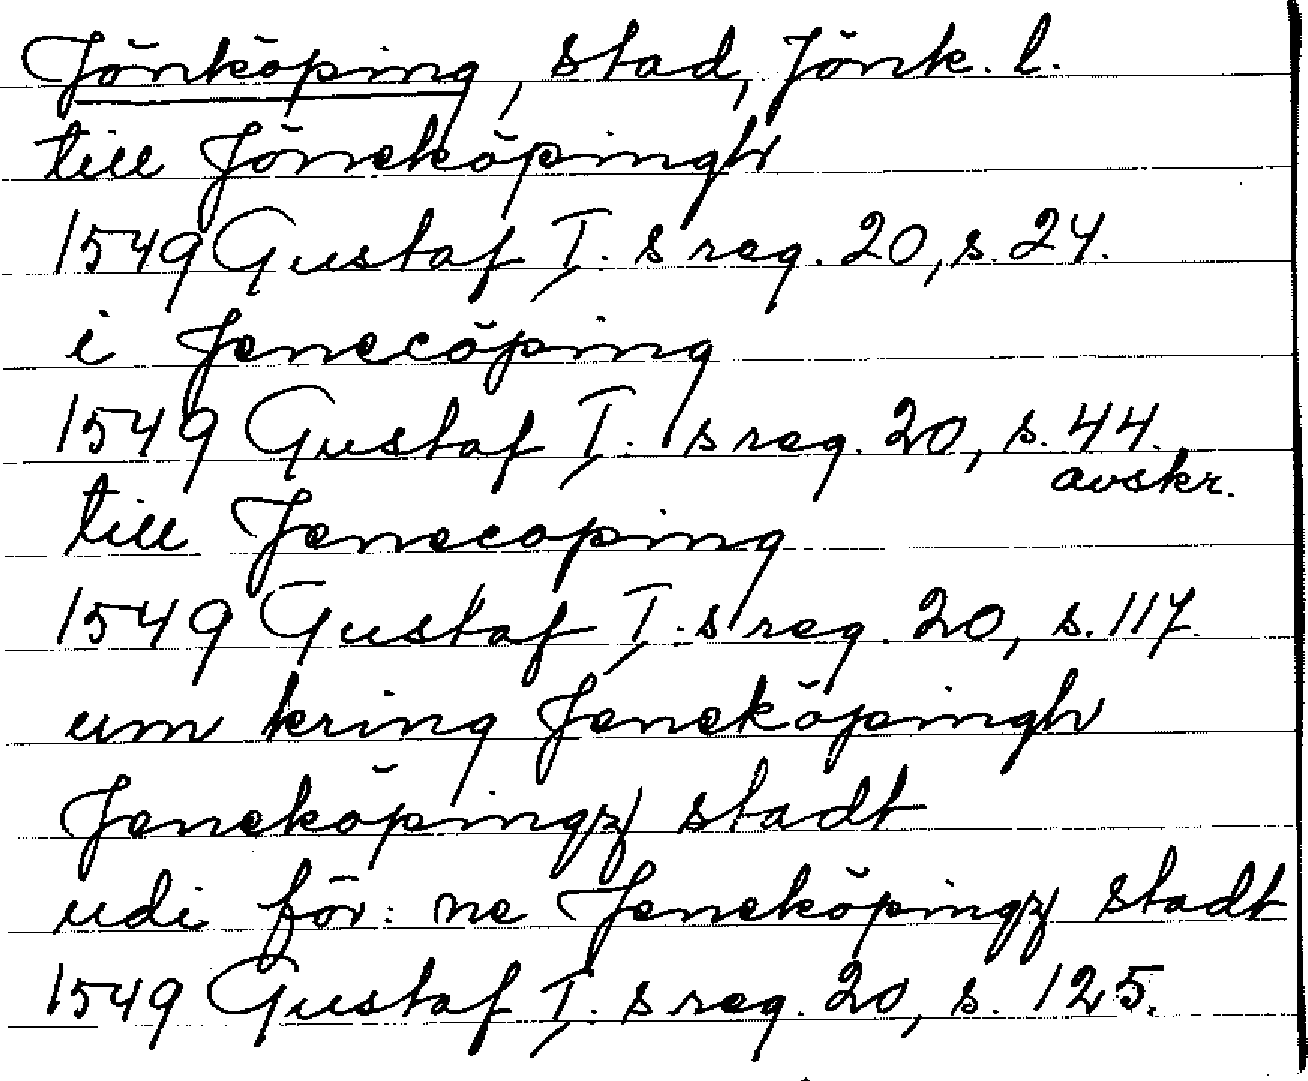 Jönköping, stad, Jönk. l.
till Jöneköpingh
1549 Gustaf I. s reg. 20, s. 24.
i Jenecöping
1549 Gustaf I. s reg. 20, s. 44.
avskr.
till Jenecoping
1549 Gustaf I. s reg. 20, s. 117.
um kring Jeneköpingh
Jeneköpingz stadt
udi för: ne Jeneköpingz stadt
1549 Gustaf I. s reg. 20, s. 125.